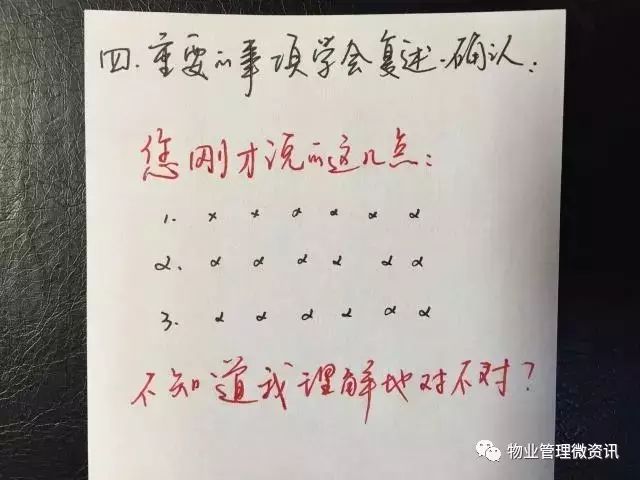 四.重要的事项学会复述.确认:
您刚才说的这几点:
1. x x x x x x
2. x x x x x x
3. x x x x x x
不知道我理解地对不对?
物业管理微资讯